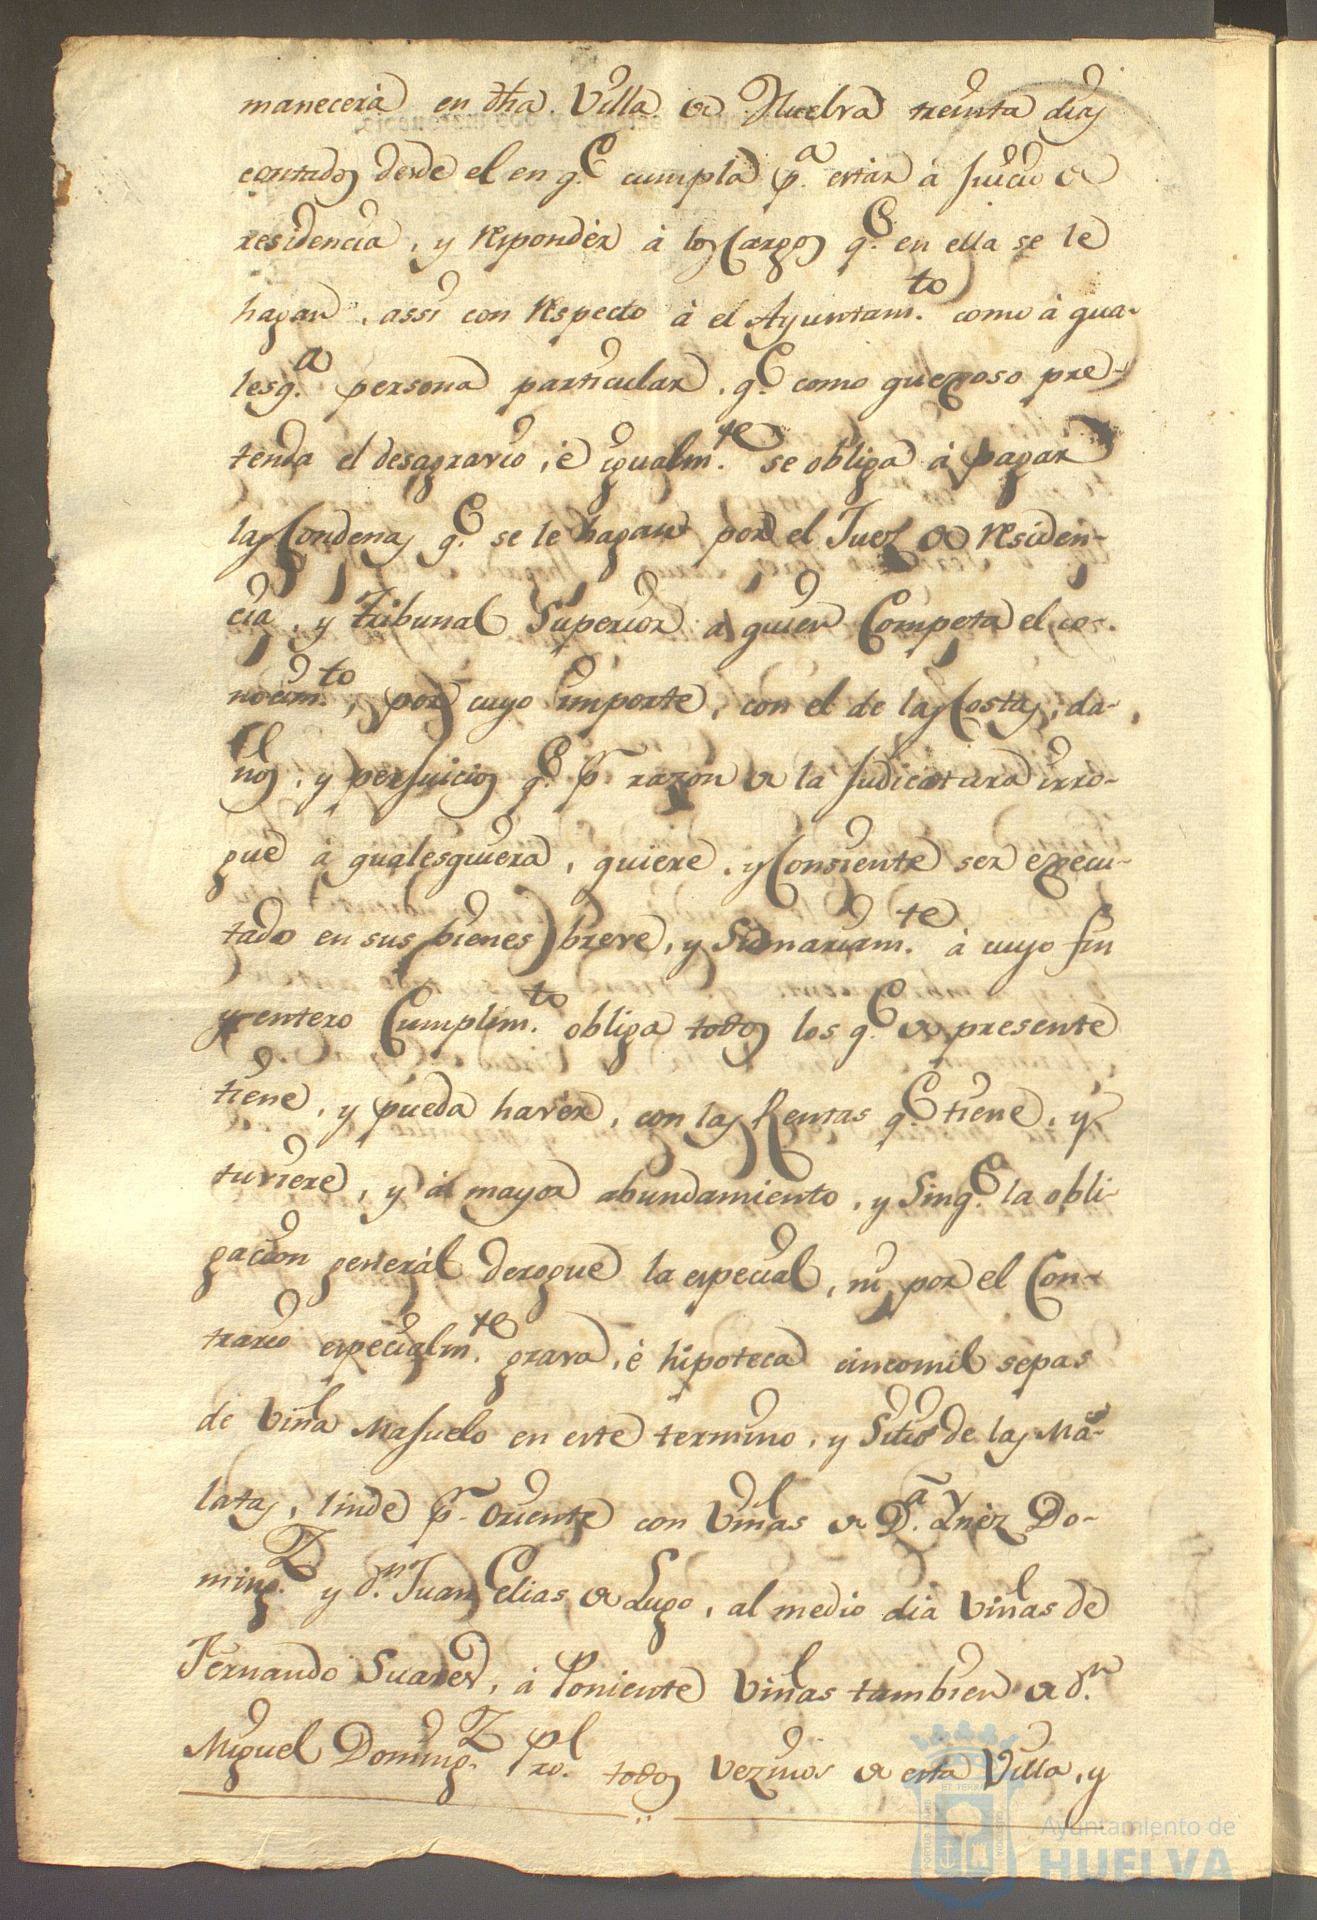 manecerà en dha. Villa de Huelva treinta dias
contados desde el en q.e cumpla p.a estàr à Juicio de
residencia, y respondèr à los Cargos q.e en ella se le
hagan, assi con respecto à el Ayuntam.to como à qua-
lesq.a persona particular, q.e como quexoso pre-
tenda el desagravio, è igualm.te se obliga à pagàr
las Condenas q.e se le hagan por el Juez de residen-
cia, y Tribunal Superior à quien Competa el co-
nocim.to, por cuyo importe, con el de las Costas, da-
ños, y perjuicios q.e p.r razòn de la Judicatura irro-
gue à qualesquiera, quiere, y Consiente ser execu-
tado en sus bienes breve, y Sumariam.te à cuyo fin
y entero Cumplim.to obliga todos los q.e de presente
tiene, y pueda havèr, con las Rentas q.e tiene, y
tuviere, y à mayor abundamiento, y Sinq.e la obli-
gacion generàl derogue la especial, ni por el Con-
trario especialm.te grava, è hipoteca cincomil sepas
de viña Masuelo en este termino, y Sitio de las Ma-
latas, linde p.r Oriente con Viñas de D.a Ynèz Do-
ming.z y d.n Juan Elias de Lugo, al medio dia viñas de
Fernando Suarez, à Poniente Viñas tambien de d.n
Miguel Doming.z Pro. todos Vezinos de esta Villa, y
Ayuntamiento de
HUELVA